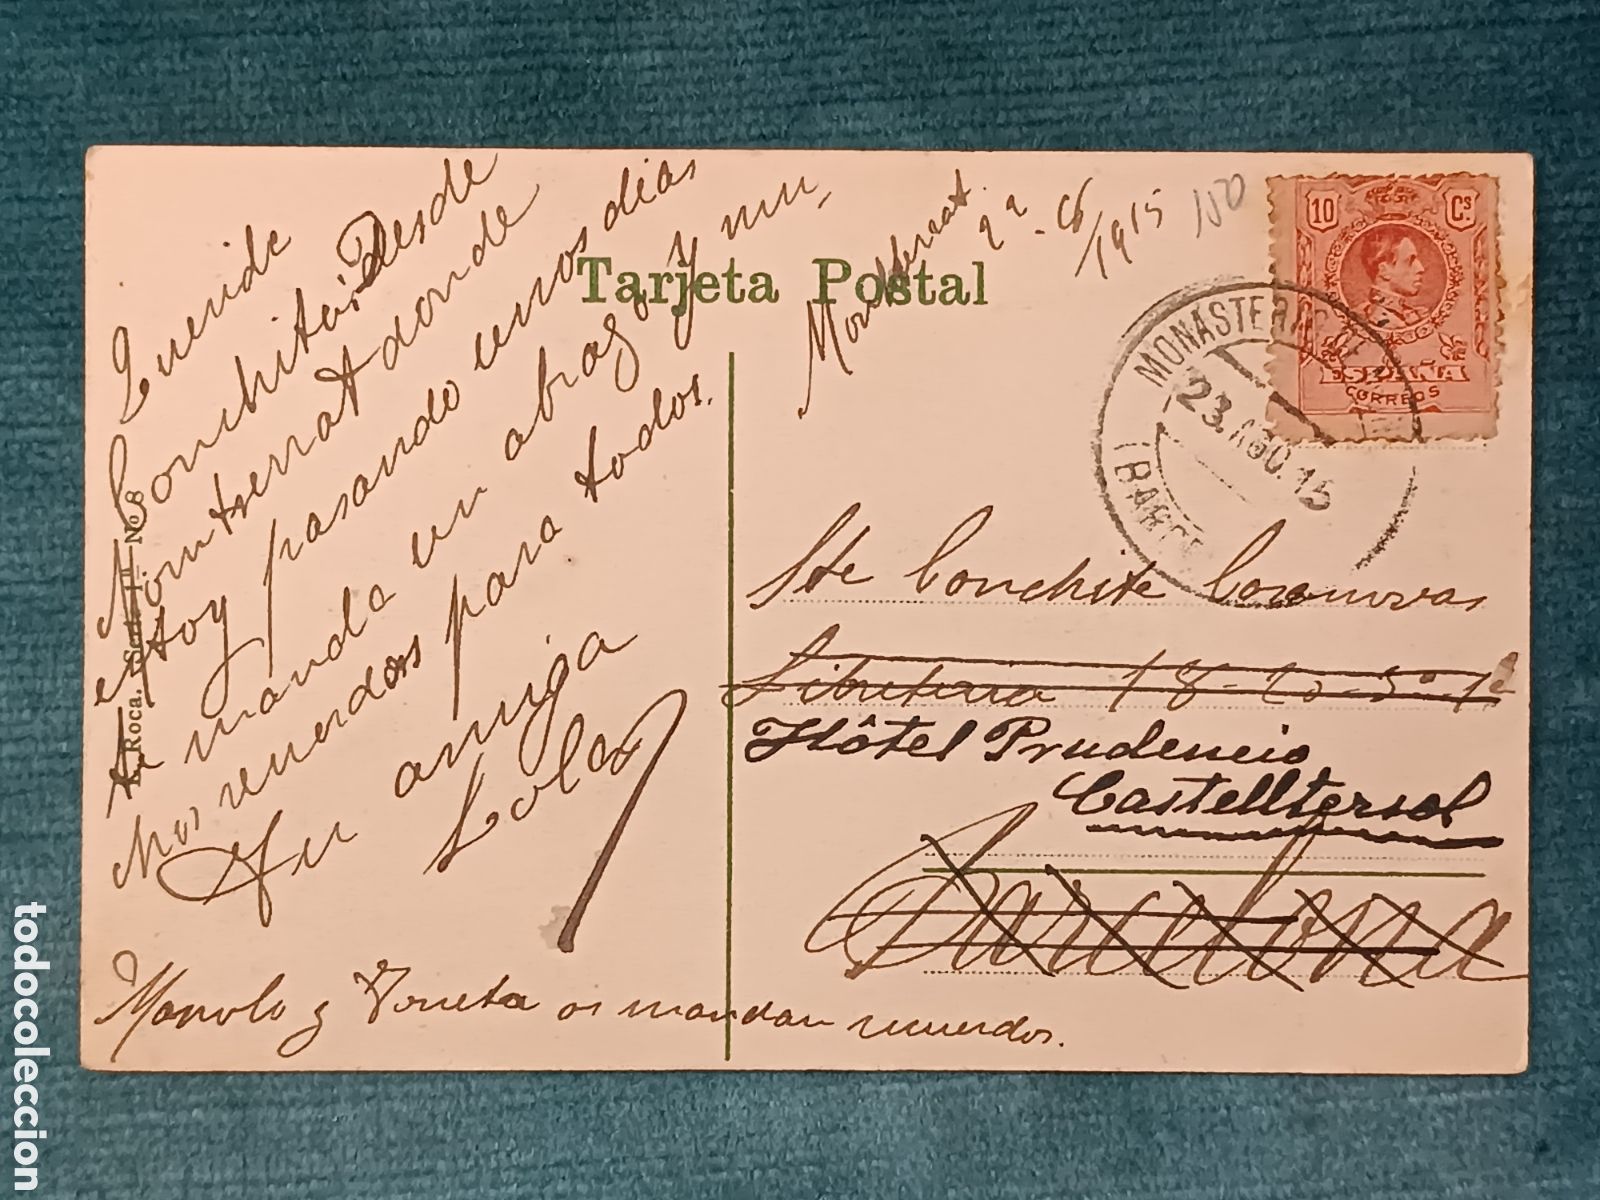 Tarjeta Postal
Montserrat. 22-8/1915
150
10 Cs
ESPAÑA
CORREOS
MONASTERIO DE
23.AGO.15
(BARCE
Querida
Conchita: Desde
Montserrat donde
estoy pasando unos dias
te manda un abrazo y mu-
chos recuerdos para todos.
Tu amiga
Lola
Manolo y os mandan recuerdos.
Sta Conchita Casanovas
18-20-3º-1ª
Hôtel Prudencio
Castelltersol
Barcelona
Roca. Nº 8
todocoleccion